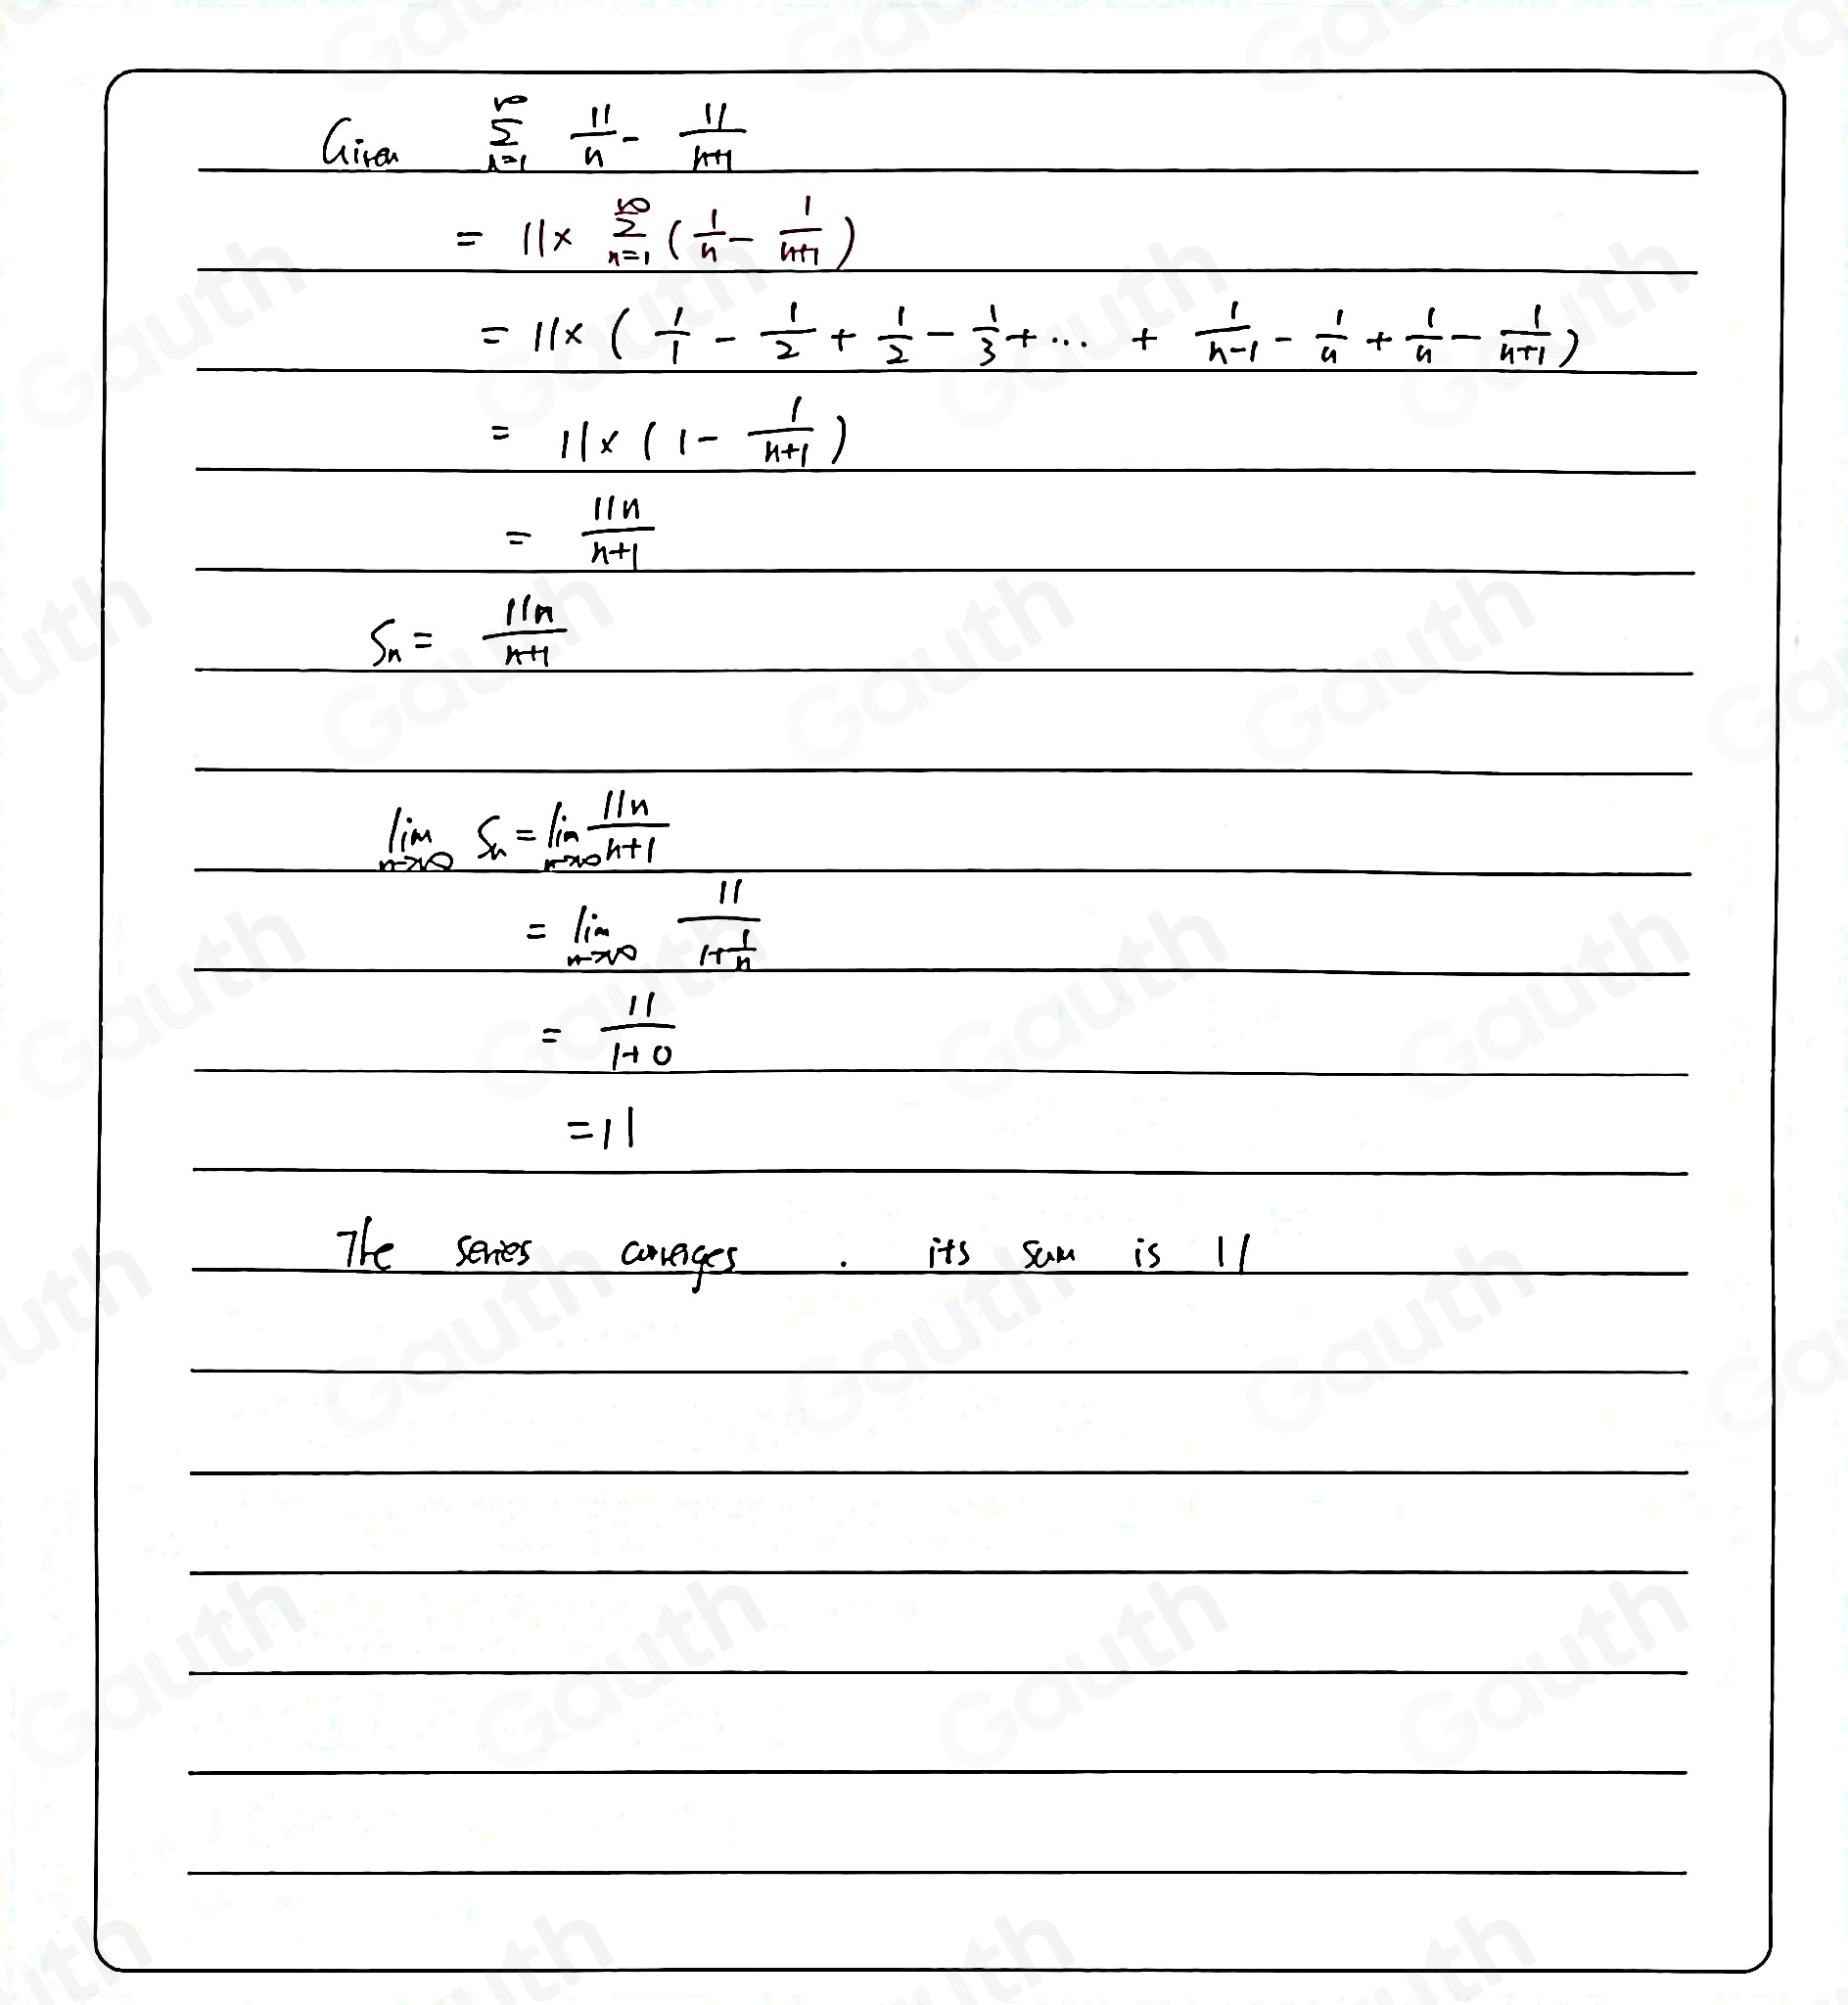 Given ∑_{n=1}^{∞} 11/n - 11/(n+1)
= 11× ∑_{n=1}^{∞} (1/n - 1/(n+1))
= 11× (1/1 - 1/2 + 1/2 - 1/3 + ... + 1/(n-1) - 1/n + 1/n - 1/(n+1))
= 11× (1 - 1/(n+1))
= 11n/(n+1)
Sn = 11n/(n+1)
lim_{n→∞} Sn = lim_{n→∞} 11n/(n+1)
= lim_{n→∞} 11/(1+1/n)
= 11/(1+0)
= 11
The series converges . its sum is 11
Gauth